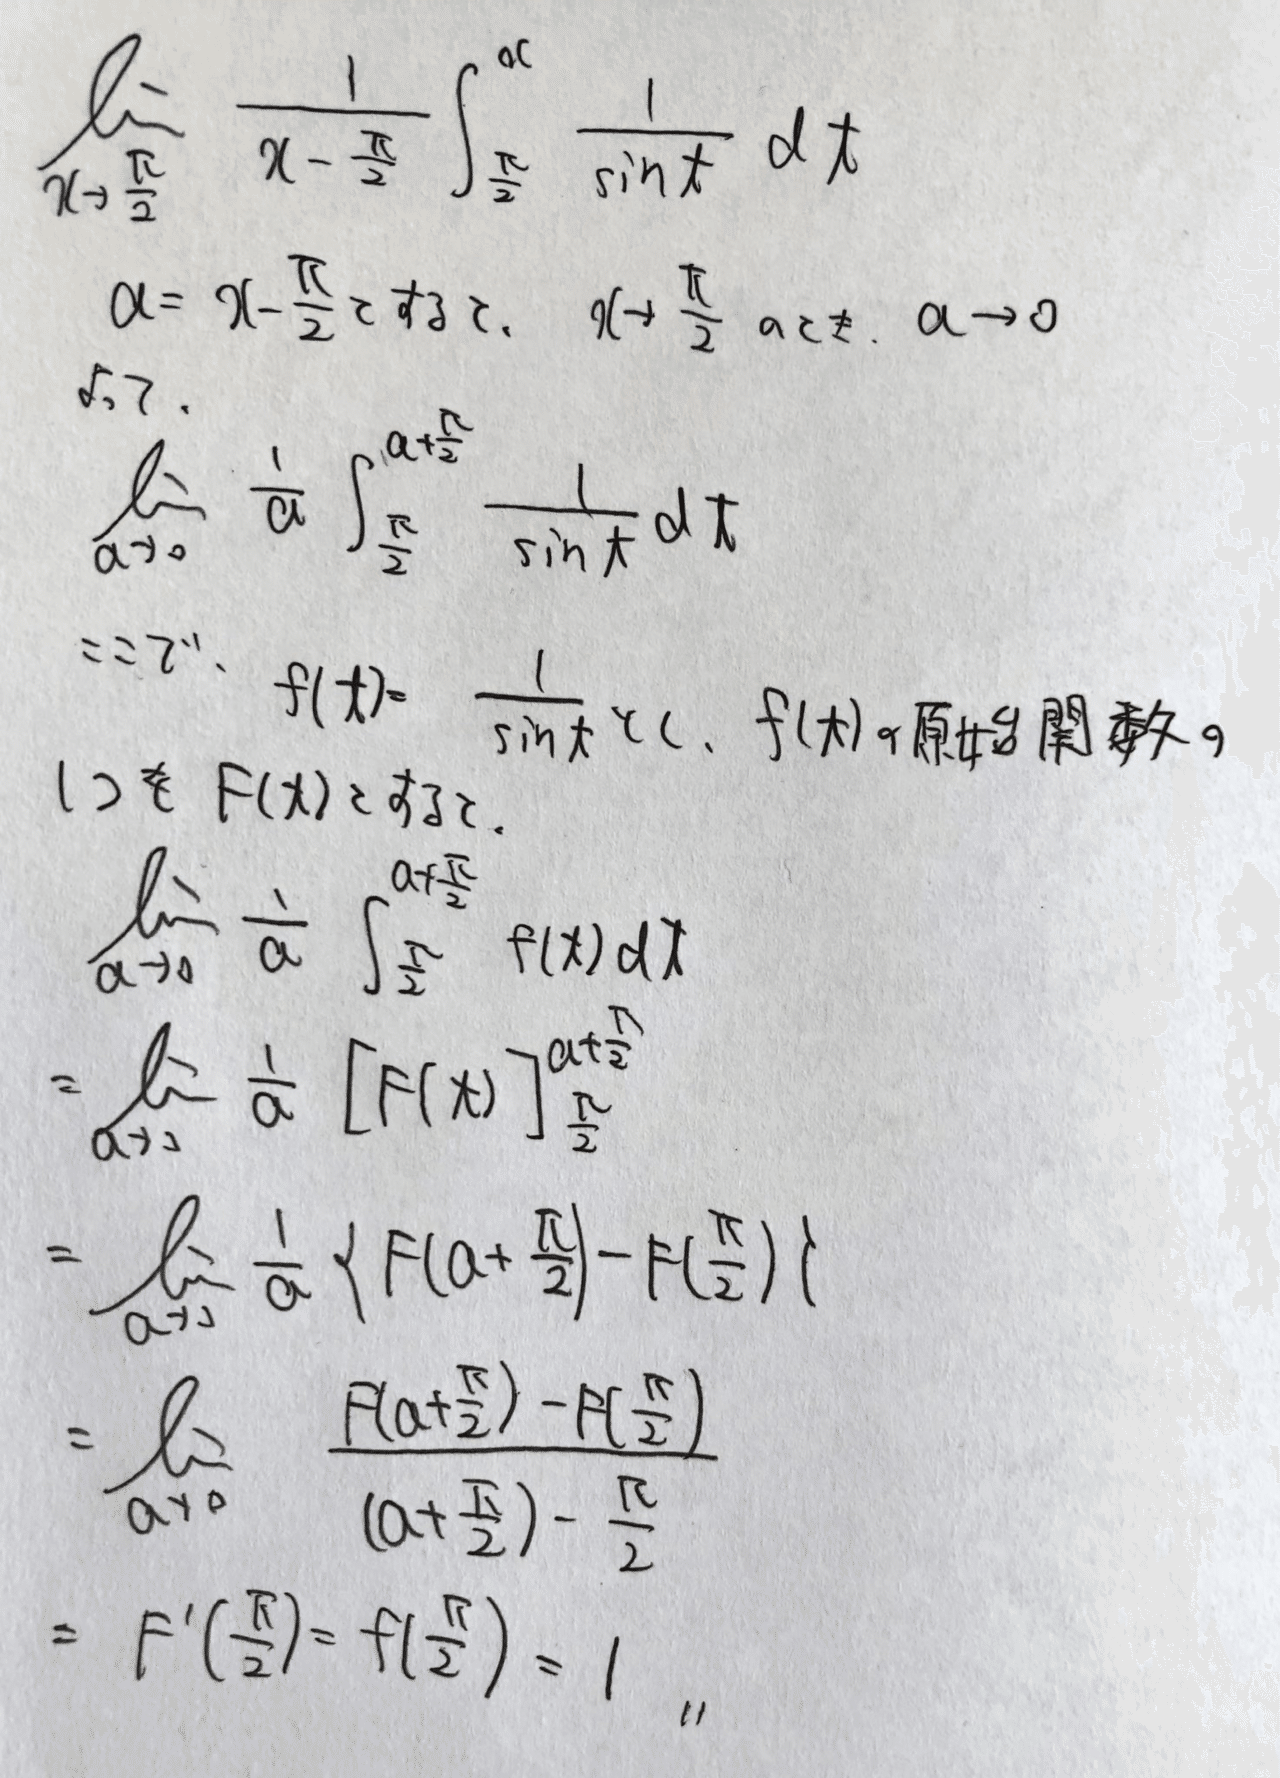 lim_{x→π/2} 1/(x-π/2) ∫_{π/2}^{x} 1/sin t dt
a = x-π/2 とすると、 x→π/2 のとき、 a→0
よって、
lim_{a→0} 1/a ∫_{π/2}^{a+π/2} 1/sin t dt
ここで、 f(t)= 1/sin t とし、 f(t)の原始関数の
1つを F(t)とすると、
lim_{a→0} 1/a ∫_{π/2}^{a+π/2} f(t)dt
= lim_{a→0} 1/a [F(t)]_{π/2}^{a+π/2}
= lim_{a→0} 1/a {F(a+π/2)-F(π/2)}
= lim_{a→0} (F(a+π/2)-F(π/2))/((a+π/2)-π/2)
= F'(π/2)= f(π/2) = 1 〃